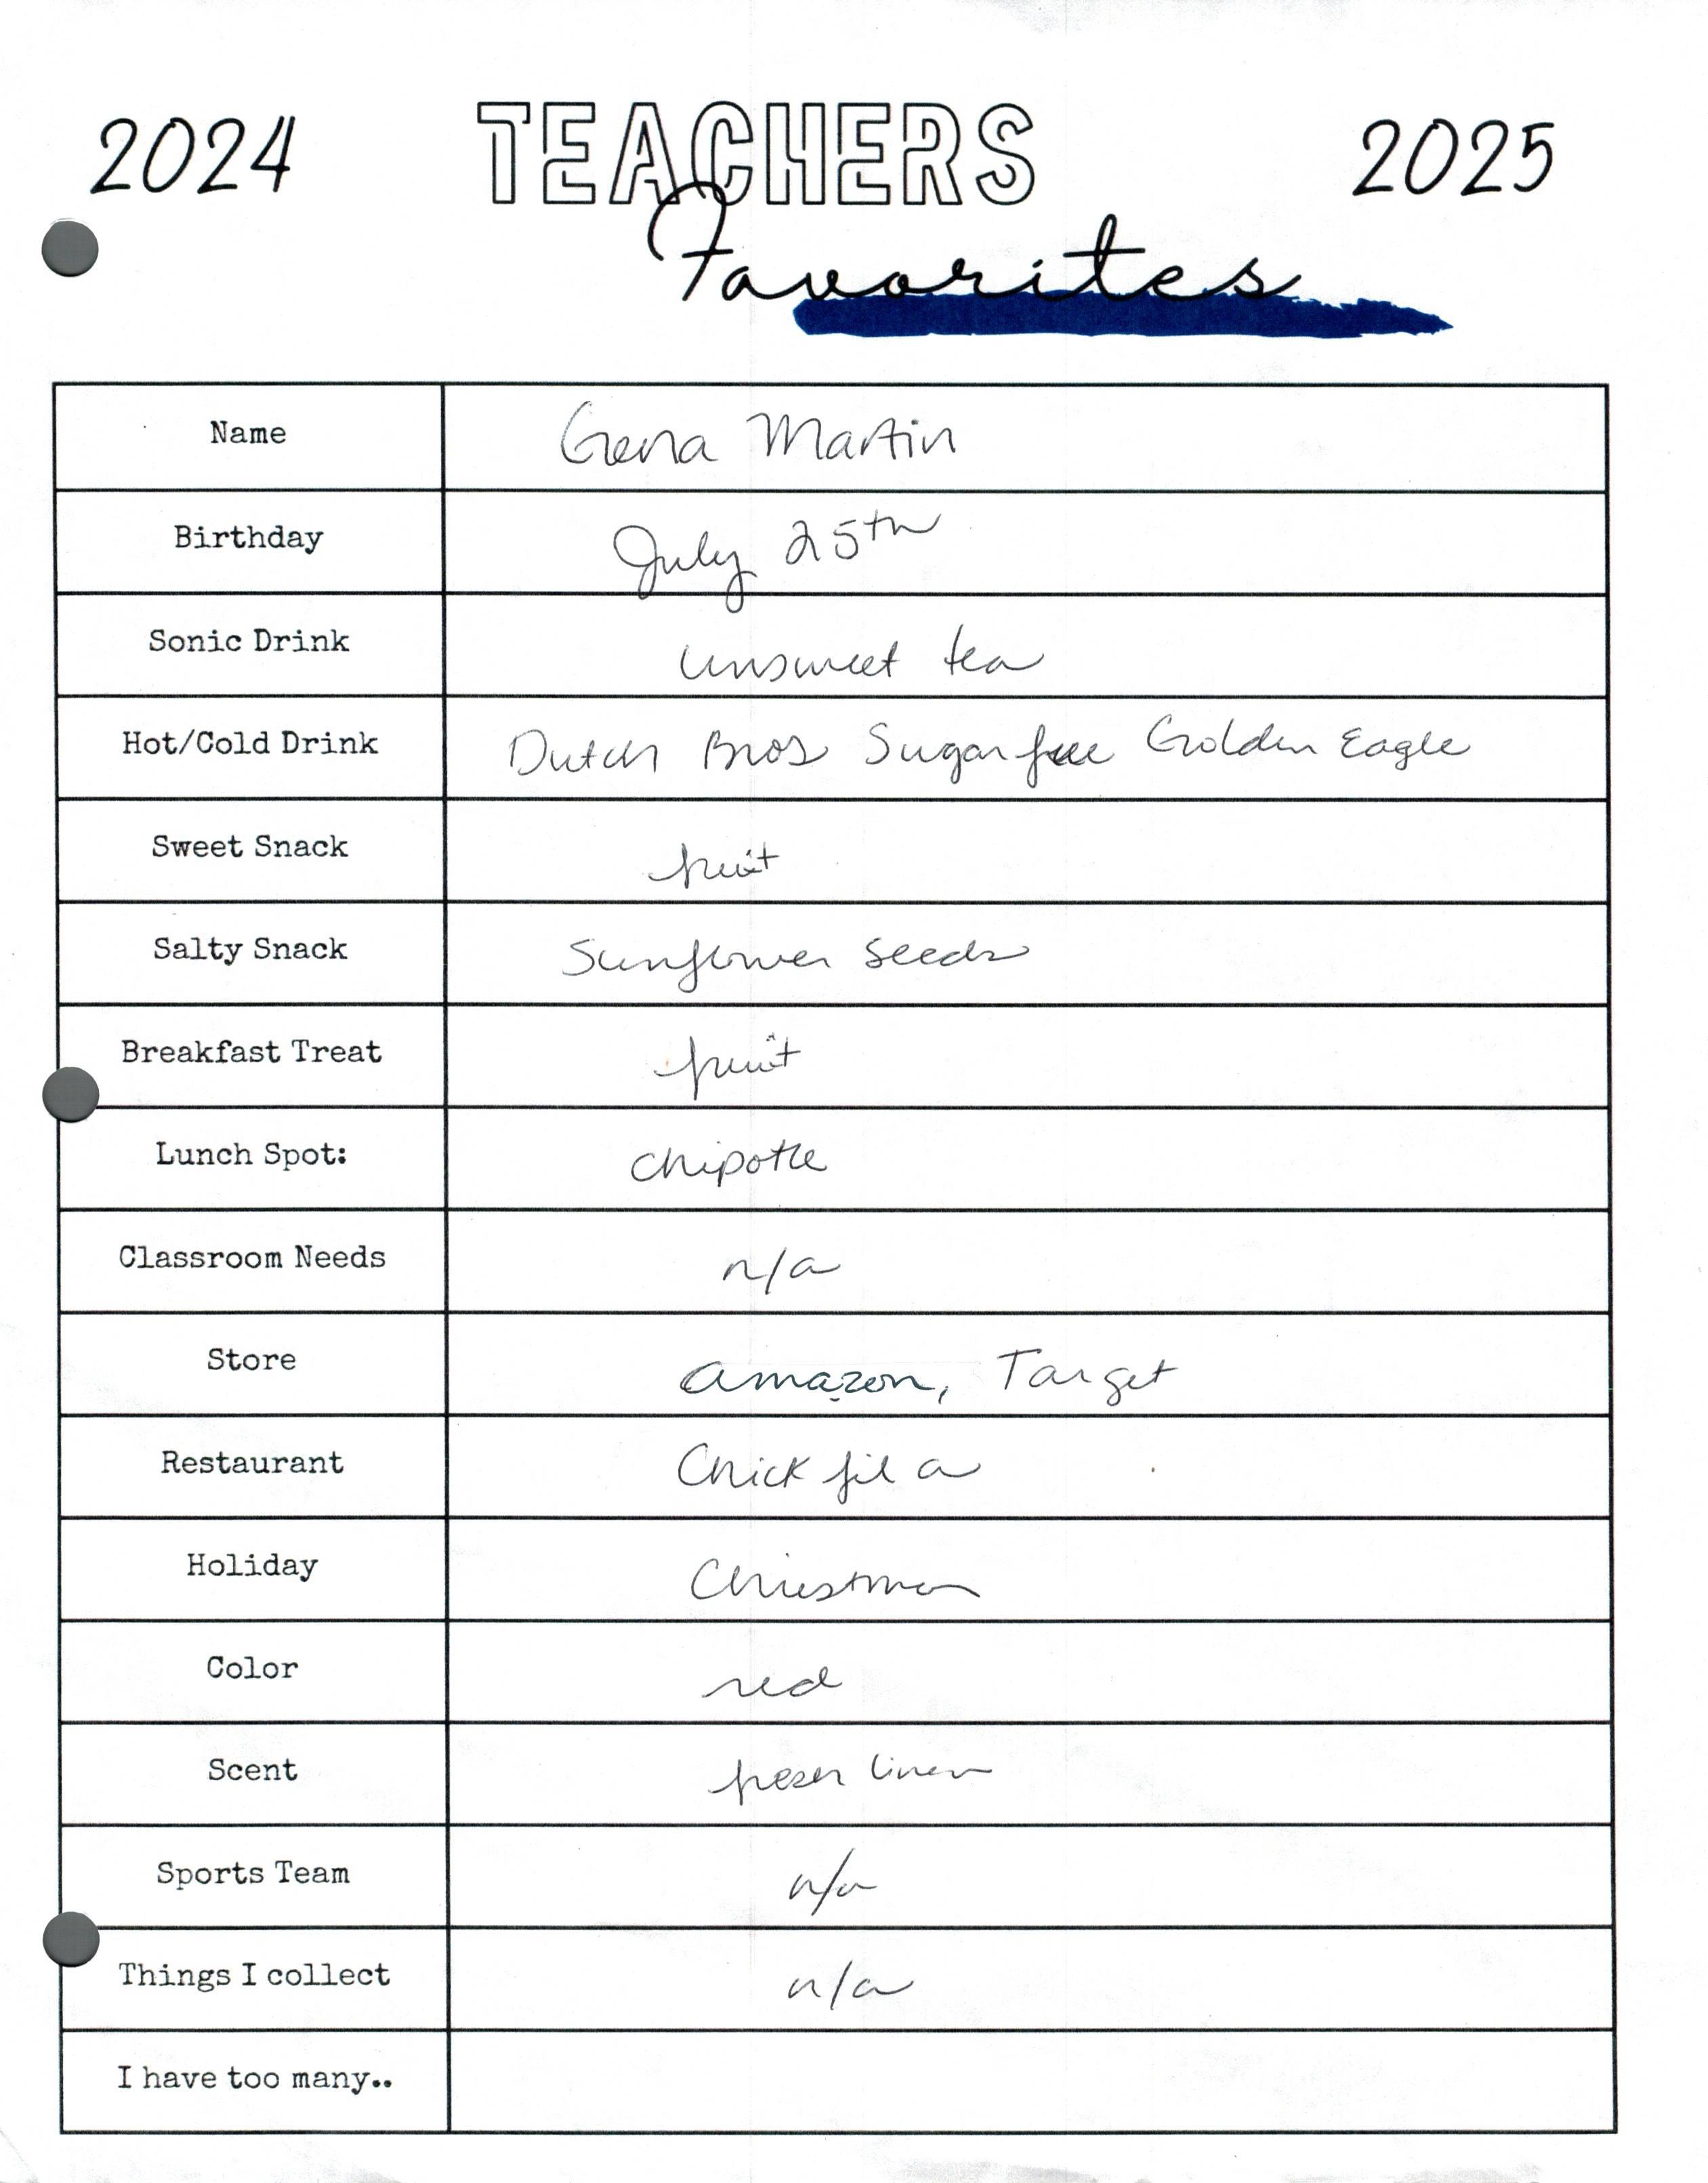 2024 TEACHERS 2025
Favorites
Name Gena Martin
Birthday July 25th
Sonic Drink unsweet tea
Hot/Cold Drink Dutch Bros Sugar free Golden Eagle
Sweet Snack fruit
Salty Snack Sunflower seeds
Breakfast Treat fruit
Lunch Spot: chipotle
Classroom Needs n/a
Store amazon, Target
Restaurant Chick fil a
Holiday Christmas
Color red
Scent fresh linen
Sports Team n/a
Things I collect n/a
I have too many..